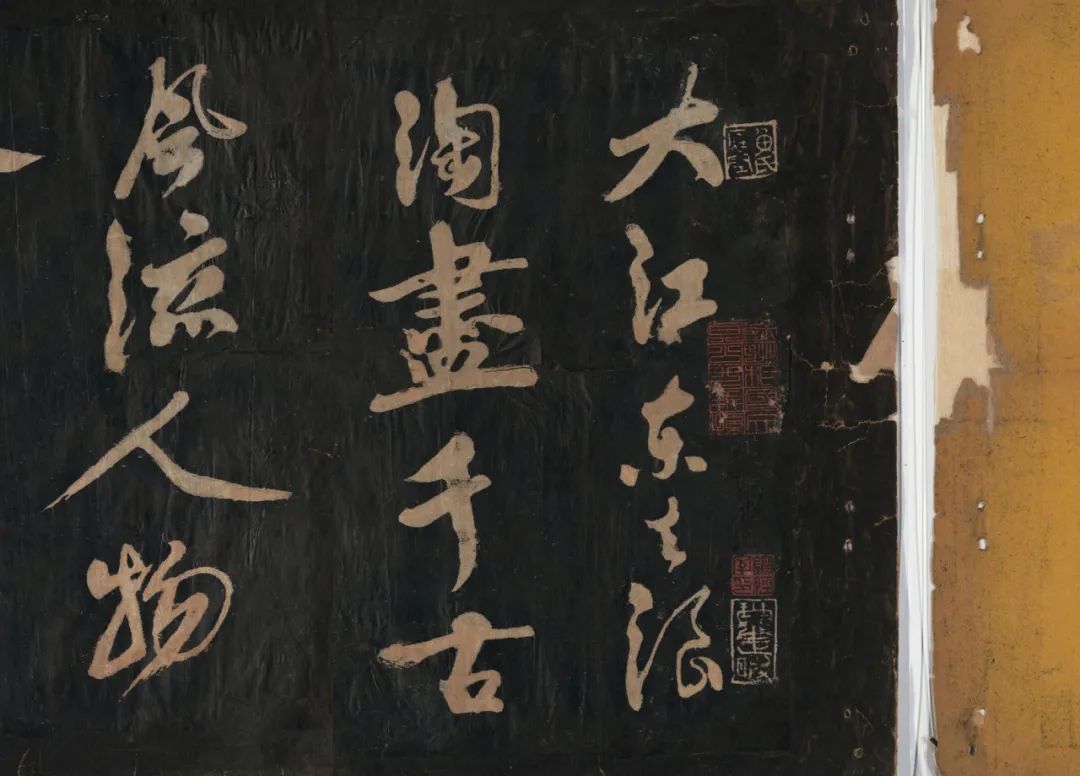 大江东去浪
淘盡千古
風流人物